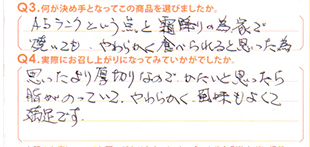 Q3.何が決め手となってこの商品を選びましたか。
A5ランクという点と霜降りの為家で
焼いても、やわらかく食べられると思った為
Q4.実際にお召し上がりになってみていかがでしたか。
思ったより厚切りなので、かたいと思ったら
脂がのっていて、やわらかく、風味もよくて
満足です。